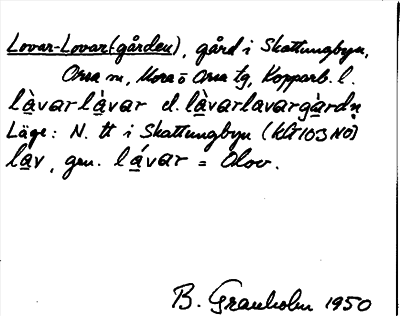 Lovar-Lovar(gården), gård i Skattungbyn,
Orsa sn, Mora o Orsa tg, Kopparb. l.
làvarlàvar el. làvarlavargàrdn
Läge: N. tt i Skattungbyn (KlT 103 NO)
lav, gen. lávar = Olov.
B. Granholm 1950